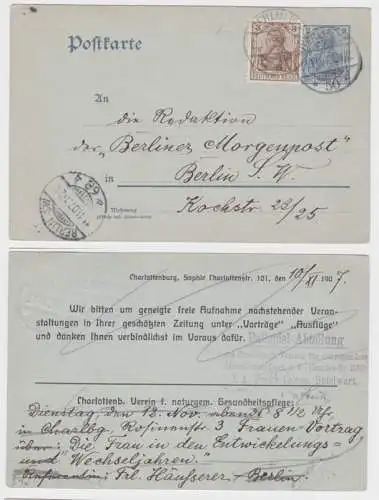 Postkarte
3 3
DEUTSCHES REICH
An
die Redaktion
der „Berliner Morgenpost"
in Berlin S. W.
Wohnung
Kochstr 23/25
BERLIN, SW
Charlottenburg, Sophie Charlottenstr. 101, den 10/XI 1907.
Wir bitten um geneigte freie Aufnahme nachstehender Veran-
staltungen in Ihrer geschätzten Zeitung unter „Vorträge" „Ausflüge"
und danken Ihnen verbindlichst im Voraus dafür.
Abteilung
Charlottenb. Verein f. naturgem. Gesundheitspflege:
Dienstag, den 12. Nov. abends 8 1/2 Uhr,
in Charlbg. Rosinenstr. 3 Frauen-Vortrag
über: „Die Frau in den Entwickelungs=
und Wechseljahren."
Referentin: Frl. Häusserer - Berlin.